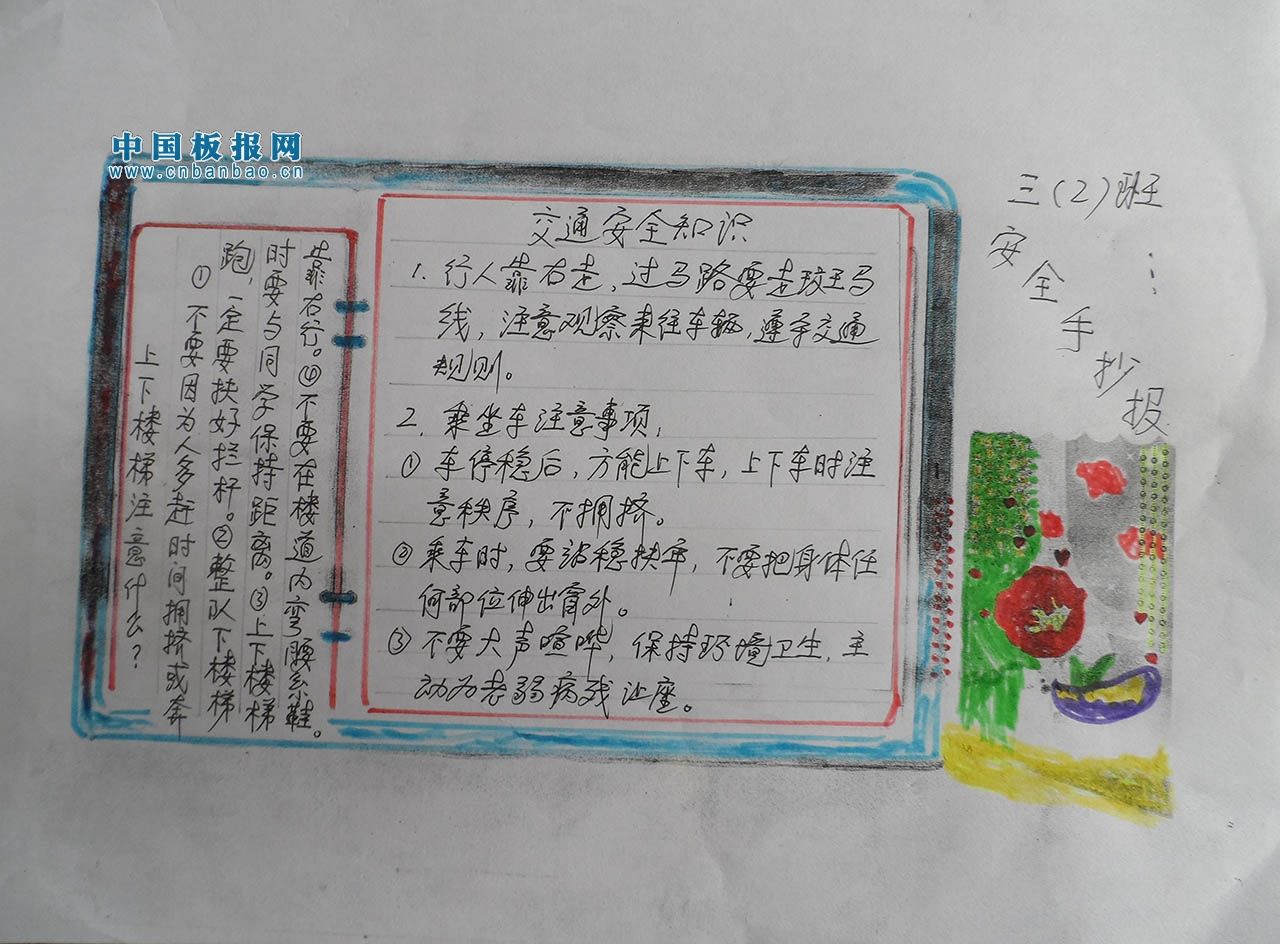 中国板报网
www.cnbanbao.cn
三(2)班
安全手抄报
交通安全知识
1. 行人靠右走，过马路要走班马
线，注意观察来往车辆，遵守交通
规则。
2. 乘坐车注意事项，
① 车停稳后，方能上下车，上下车时注
意秩序，不拥挤。
② 乘车时，要站稳扶牢，不要把身体任
何部位伸出窗外。
③ 不要大声喧哗，保持环境卫生，主
动为老弱病残让座。
上下楼梯注意什么？
①不要因为人多赶时间拥挤或奔
跑，一定要扶好拦杆。②整队下楼梯
时要与同学保持距离。③上下楼梯
靠右行。④不要在楼道内弯腰系鞋。